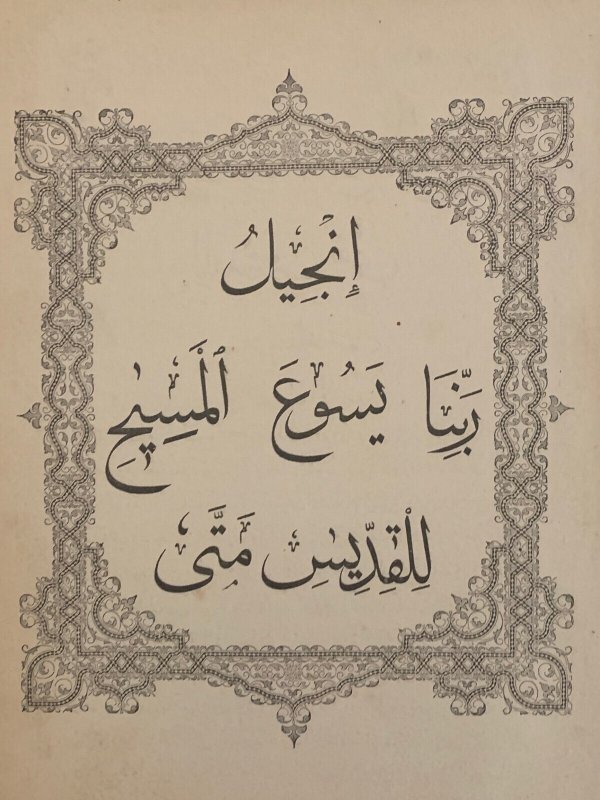 إِنْجِيلُ
رَبِّنَا يَسُوعَ ٱلْمَسِيحِ
لِلْقِدِّيسِ مَتَّى